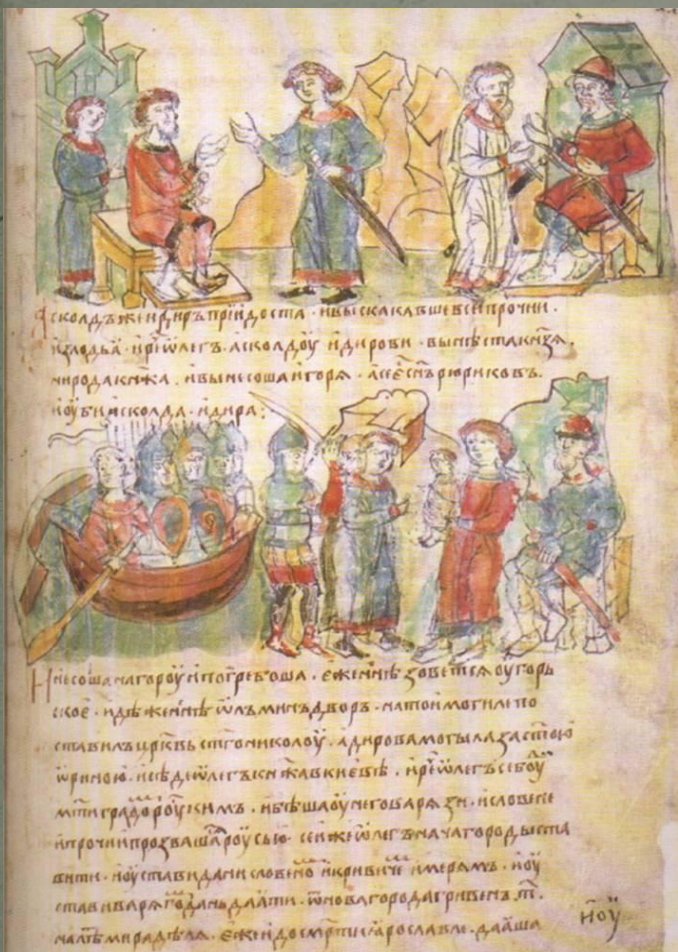 Асколдъже идиръ прїидоста · ивыскакавшевси прочии ·
излодьа · ирⷱеѡлегъ · асколдоу идирови · вынѣста кнѧзѧ ·
нирода кнѧжа · ивынесоша игорѧ · асе есⷮь сн҃ъ рюриковъ ·
иоубиша асколда · идира ;
Инесоша нагороу ипогребоша · еженнѣ зоветсѧ оугорь
ское · идѣженнѣ ѡлъминъ дворъ · натои могиле по
ставилъ цр҃квь ст҃го николоу · адирова могыла за ст҃ою
ѡриною · исѣде ѡлегъ кнѧжа в киевѣ · ирⷱе ѡлегъ себоу
мт҃и градо роускимъ · ибѣша оу него варѧзи · исловене
ипрочии прозвашасѧ роусью · сеиже ѡлегъ нача городы ста
вити · иоустави дани словено и кривиче имерѧмъ · иоу
стави варѧго дань даӕти · ѿ новагорода гривенъ · т҃ ·
налѣ мира дѣлѧ · еже и до смр҃ти ӕрославле · даӕша
иоу